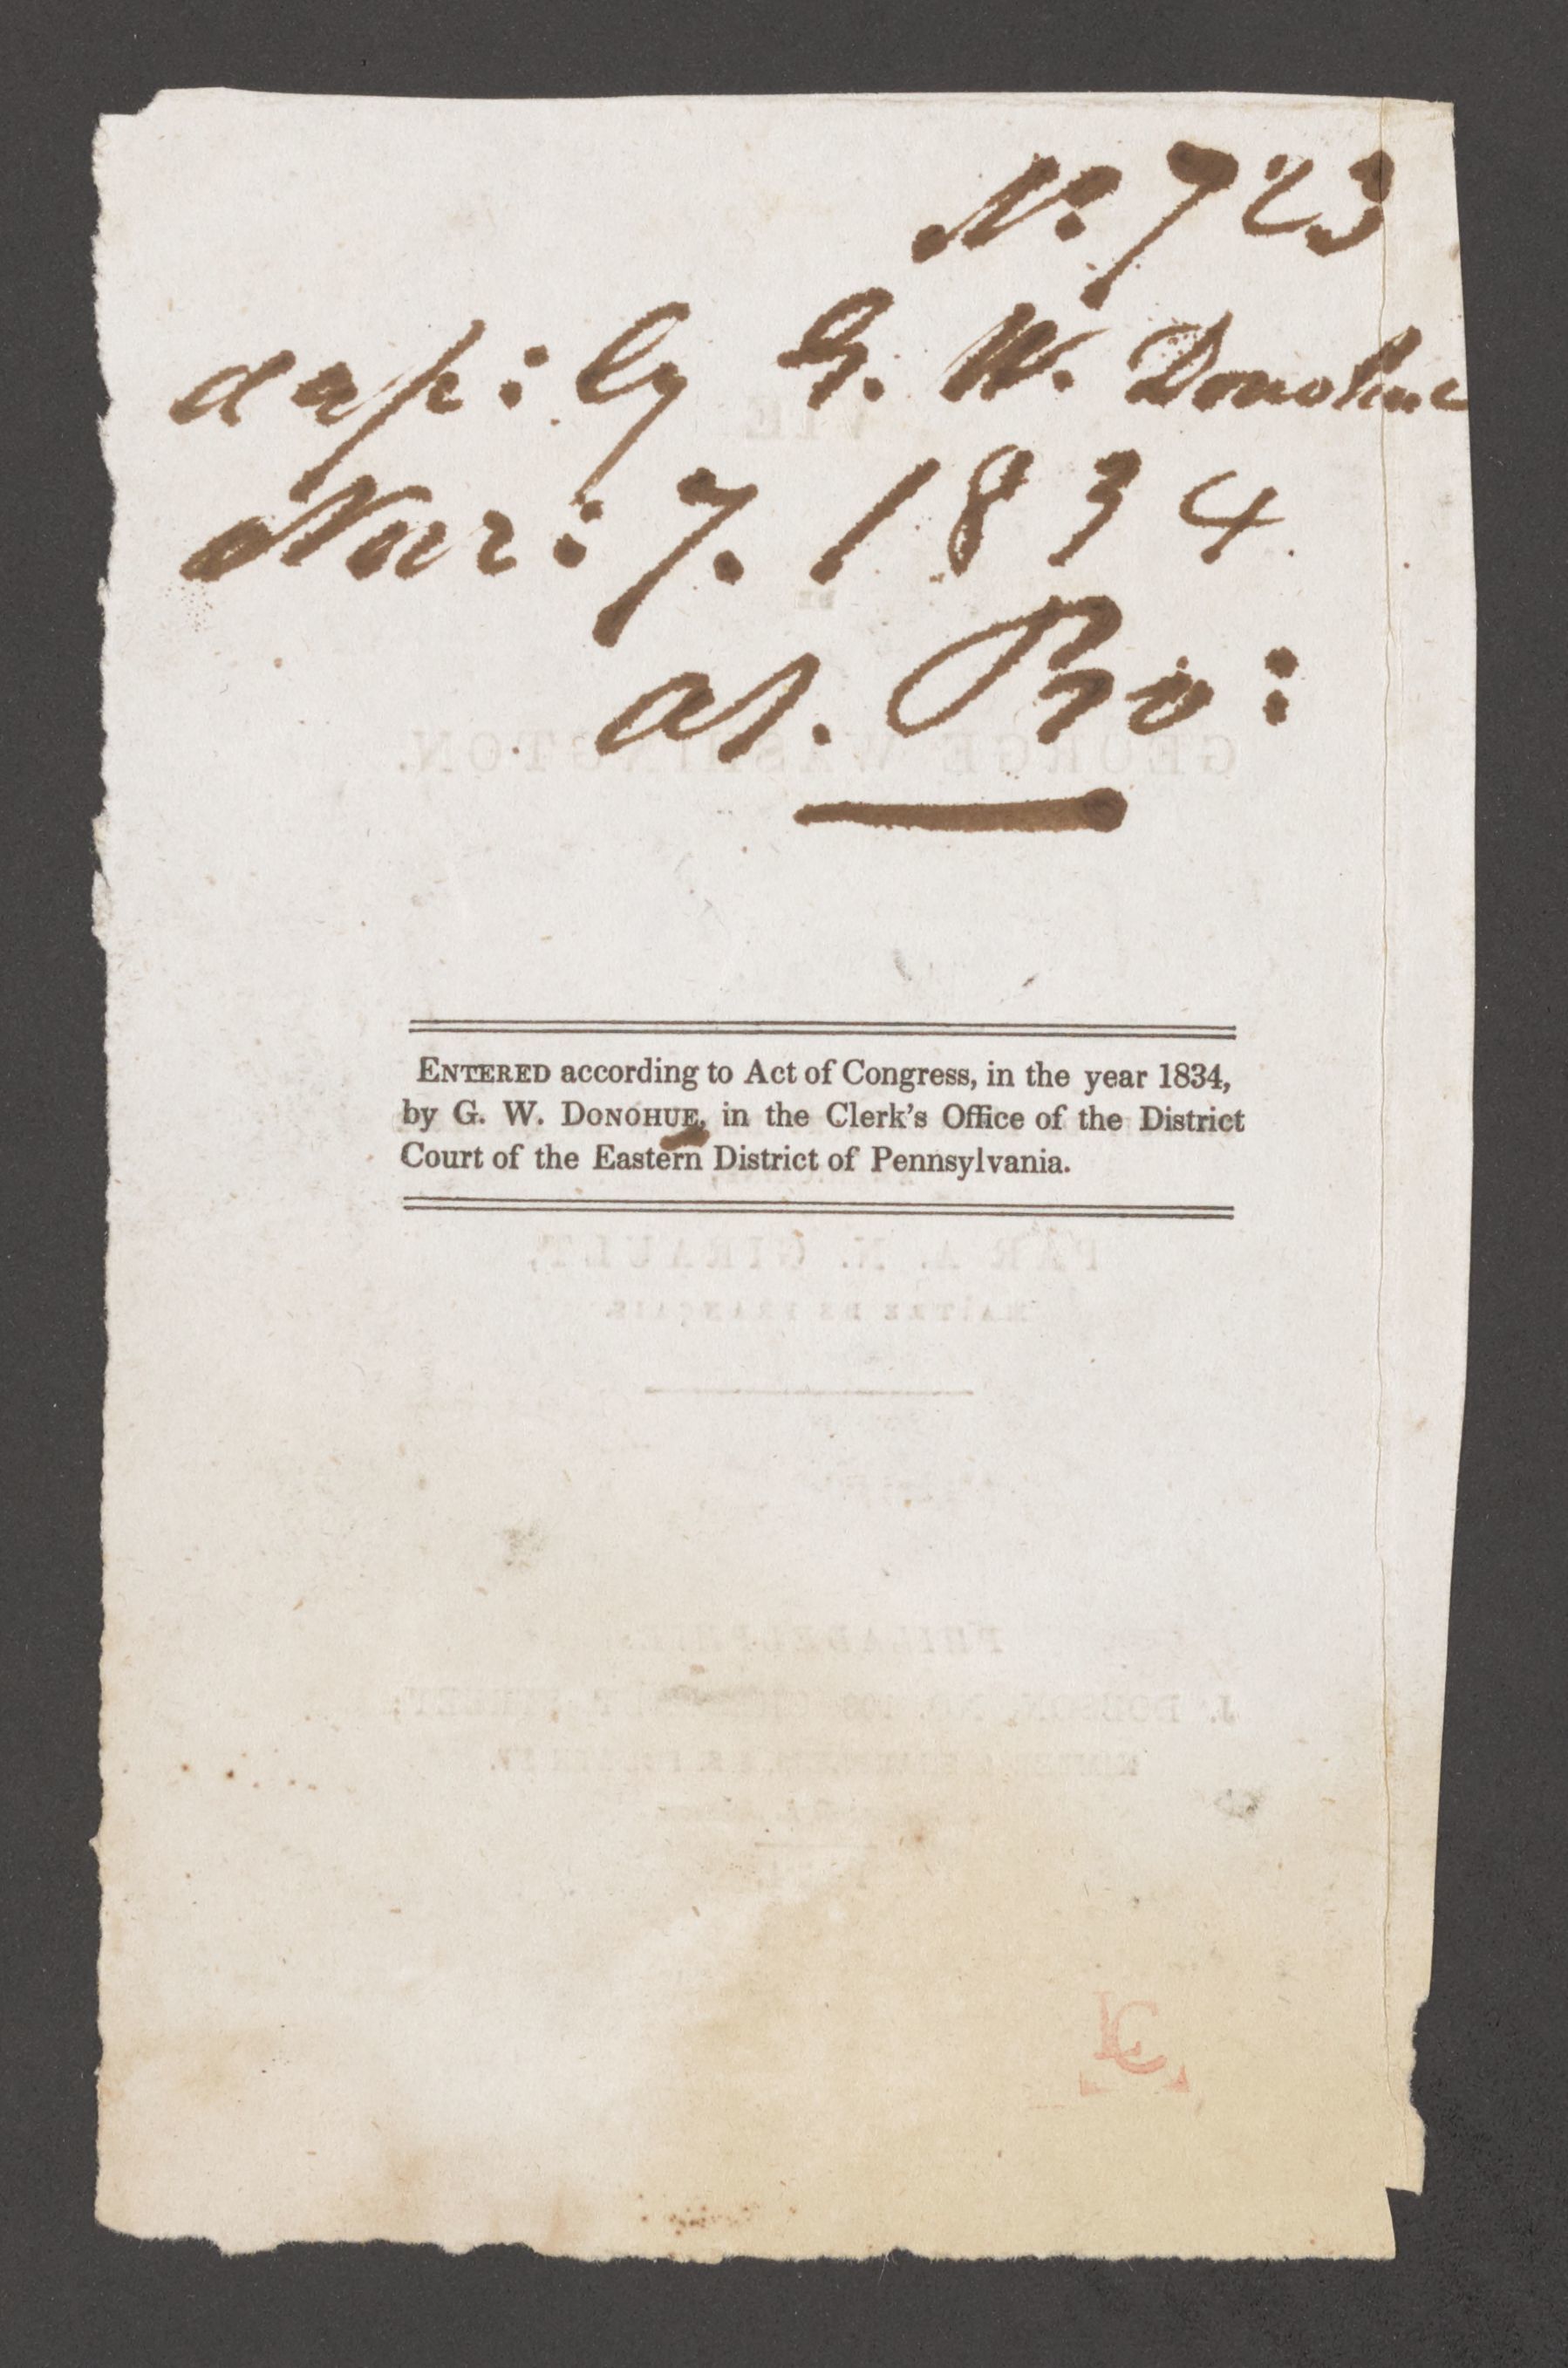 No. 723
dep: by G. W. Donohue
Mar: 7. 1834.
as. Pro:
ENTERED according to Act of Congress, in the year 1834,
by G. W. DONOHUE, in the Clerk's Office of the District
Court of the Eastern District of Pennsylvania.
GEORGE WASHINGTON.
PAR A. N. GIRAULT,
MAÎTRE DE FRANÇAIS.
LC